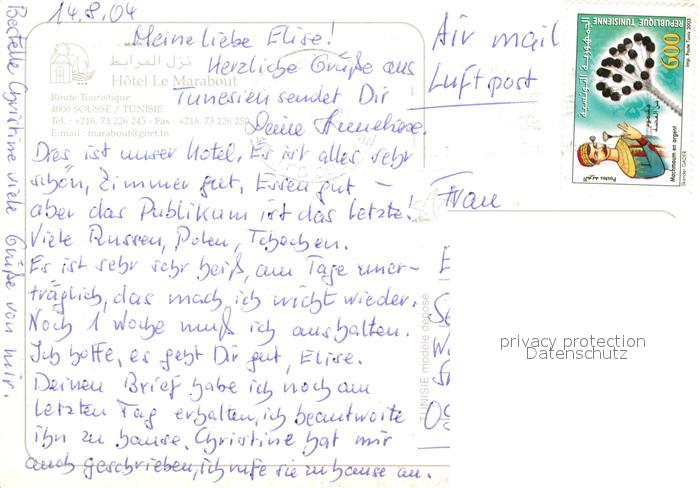 14.8.04
Meine liebe Elise!
Herzliche Grüße aus
Tunesien sendet Dir
Deine
Dies ist unser Hotel. Es ist alles sehr
schön, Zimmer gut, Essen gut –
aber das Publikum ist das Letzte!
Viele Russen, Polen, Tschechen.
Es ist sehr sehr heiß, am Tage uner-
träglich, das mach ich nicht wieder.
Noch 1 Woche muß ich aushalten.
Ich hoffe, es geht Dir gut, Elise.
Deinen Brief habe ich noch am
letzten Tag erhalten, ich beantworte
ihn zu hause. Christine hat mir
auch geschrieben, ich rufe sie zu hause an.
Bestelle Christine viele Grüße von mir.
نزل المرابط
Hôtel Le Marabout
Route Touristique
4000 SOUSSE / TUNISIE
Tel. : +216. 73 226 245 - Fax +216. 73 226 250
E-mail : marabout@gnet.tn
TUNISIE modèle déposé
Air mail
Luftpost
Frau
privacy protection
Datenschutz
الجمهورية التونسية
REPUBLIQUE TUNISIENNE
600
Imp. Poste Tunis 2003
مشموم من الفضة
Machmoum en argent
Postes البريد